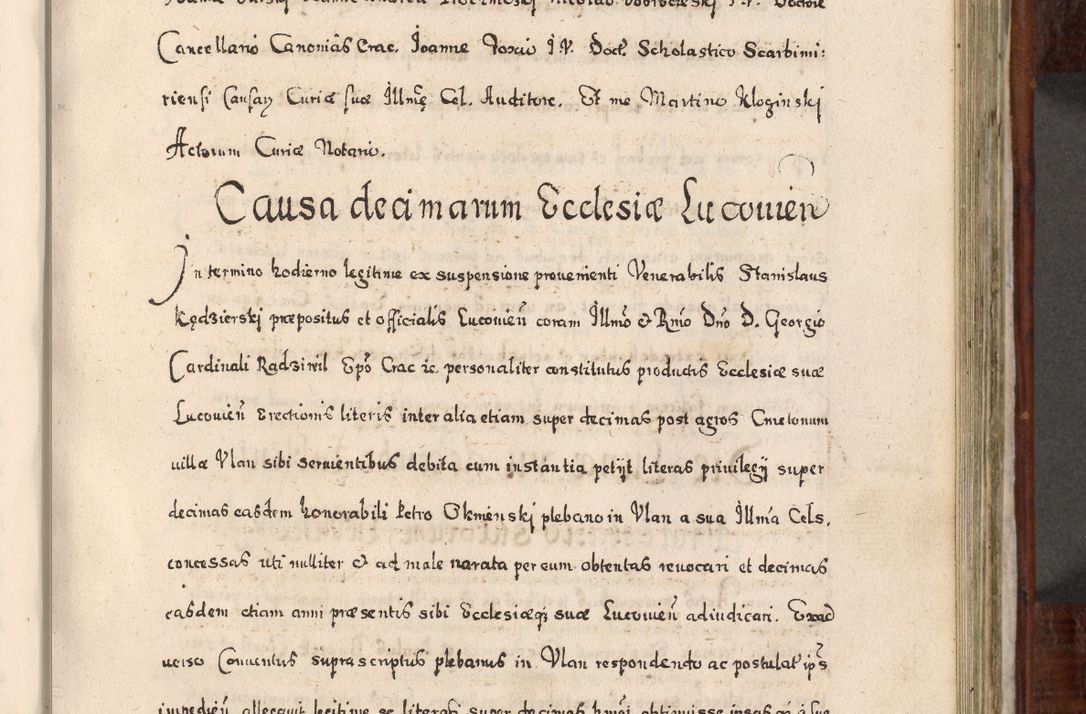 Cancellario Canonias Crac. Joanne Foxio J. V. Doct. Scholastico Scarbimi:
riensi Causar. Curiæ suæ Illmę Cel. Auditore. Et me Martino Kloginskj
Actorum Curiæ Notario.
Causa decimarum Ecclesiæ Lucouien
In termino hodierno legitime ex suspensione prouenienti Venerabilis Stanislaus
Kędzierskj præpositus et officialis Lucouień coram Illmo & Rmo Dno D. Georgio
Cardinali Radziwil Epo Crac ic. personaliter constitutus productis Ecclesiæ suæ
Lucouień Erectionis literis inter alia etiam super decimas post agros Cmetonum
uillæ Vlan sibi seruientibus debita cum instantia petijt literas priuilegij super
decimas easdem honorabili Petro Okmenskj plebano in Vlan a sua Illma Cels.
concessas uti nulliter & ad male narata per eum obtentas reuocari et decimas
easdem etiam anni præsentis sibi Ecclesiæq; suæ Lucouień adiudicari. Exad
uerso Conuentus suprascriptus plebanus in Vlan respondendo ac postulat ips
impedień allegauit legitime se literas super decimas hmoi obtinuisse